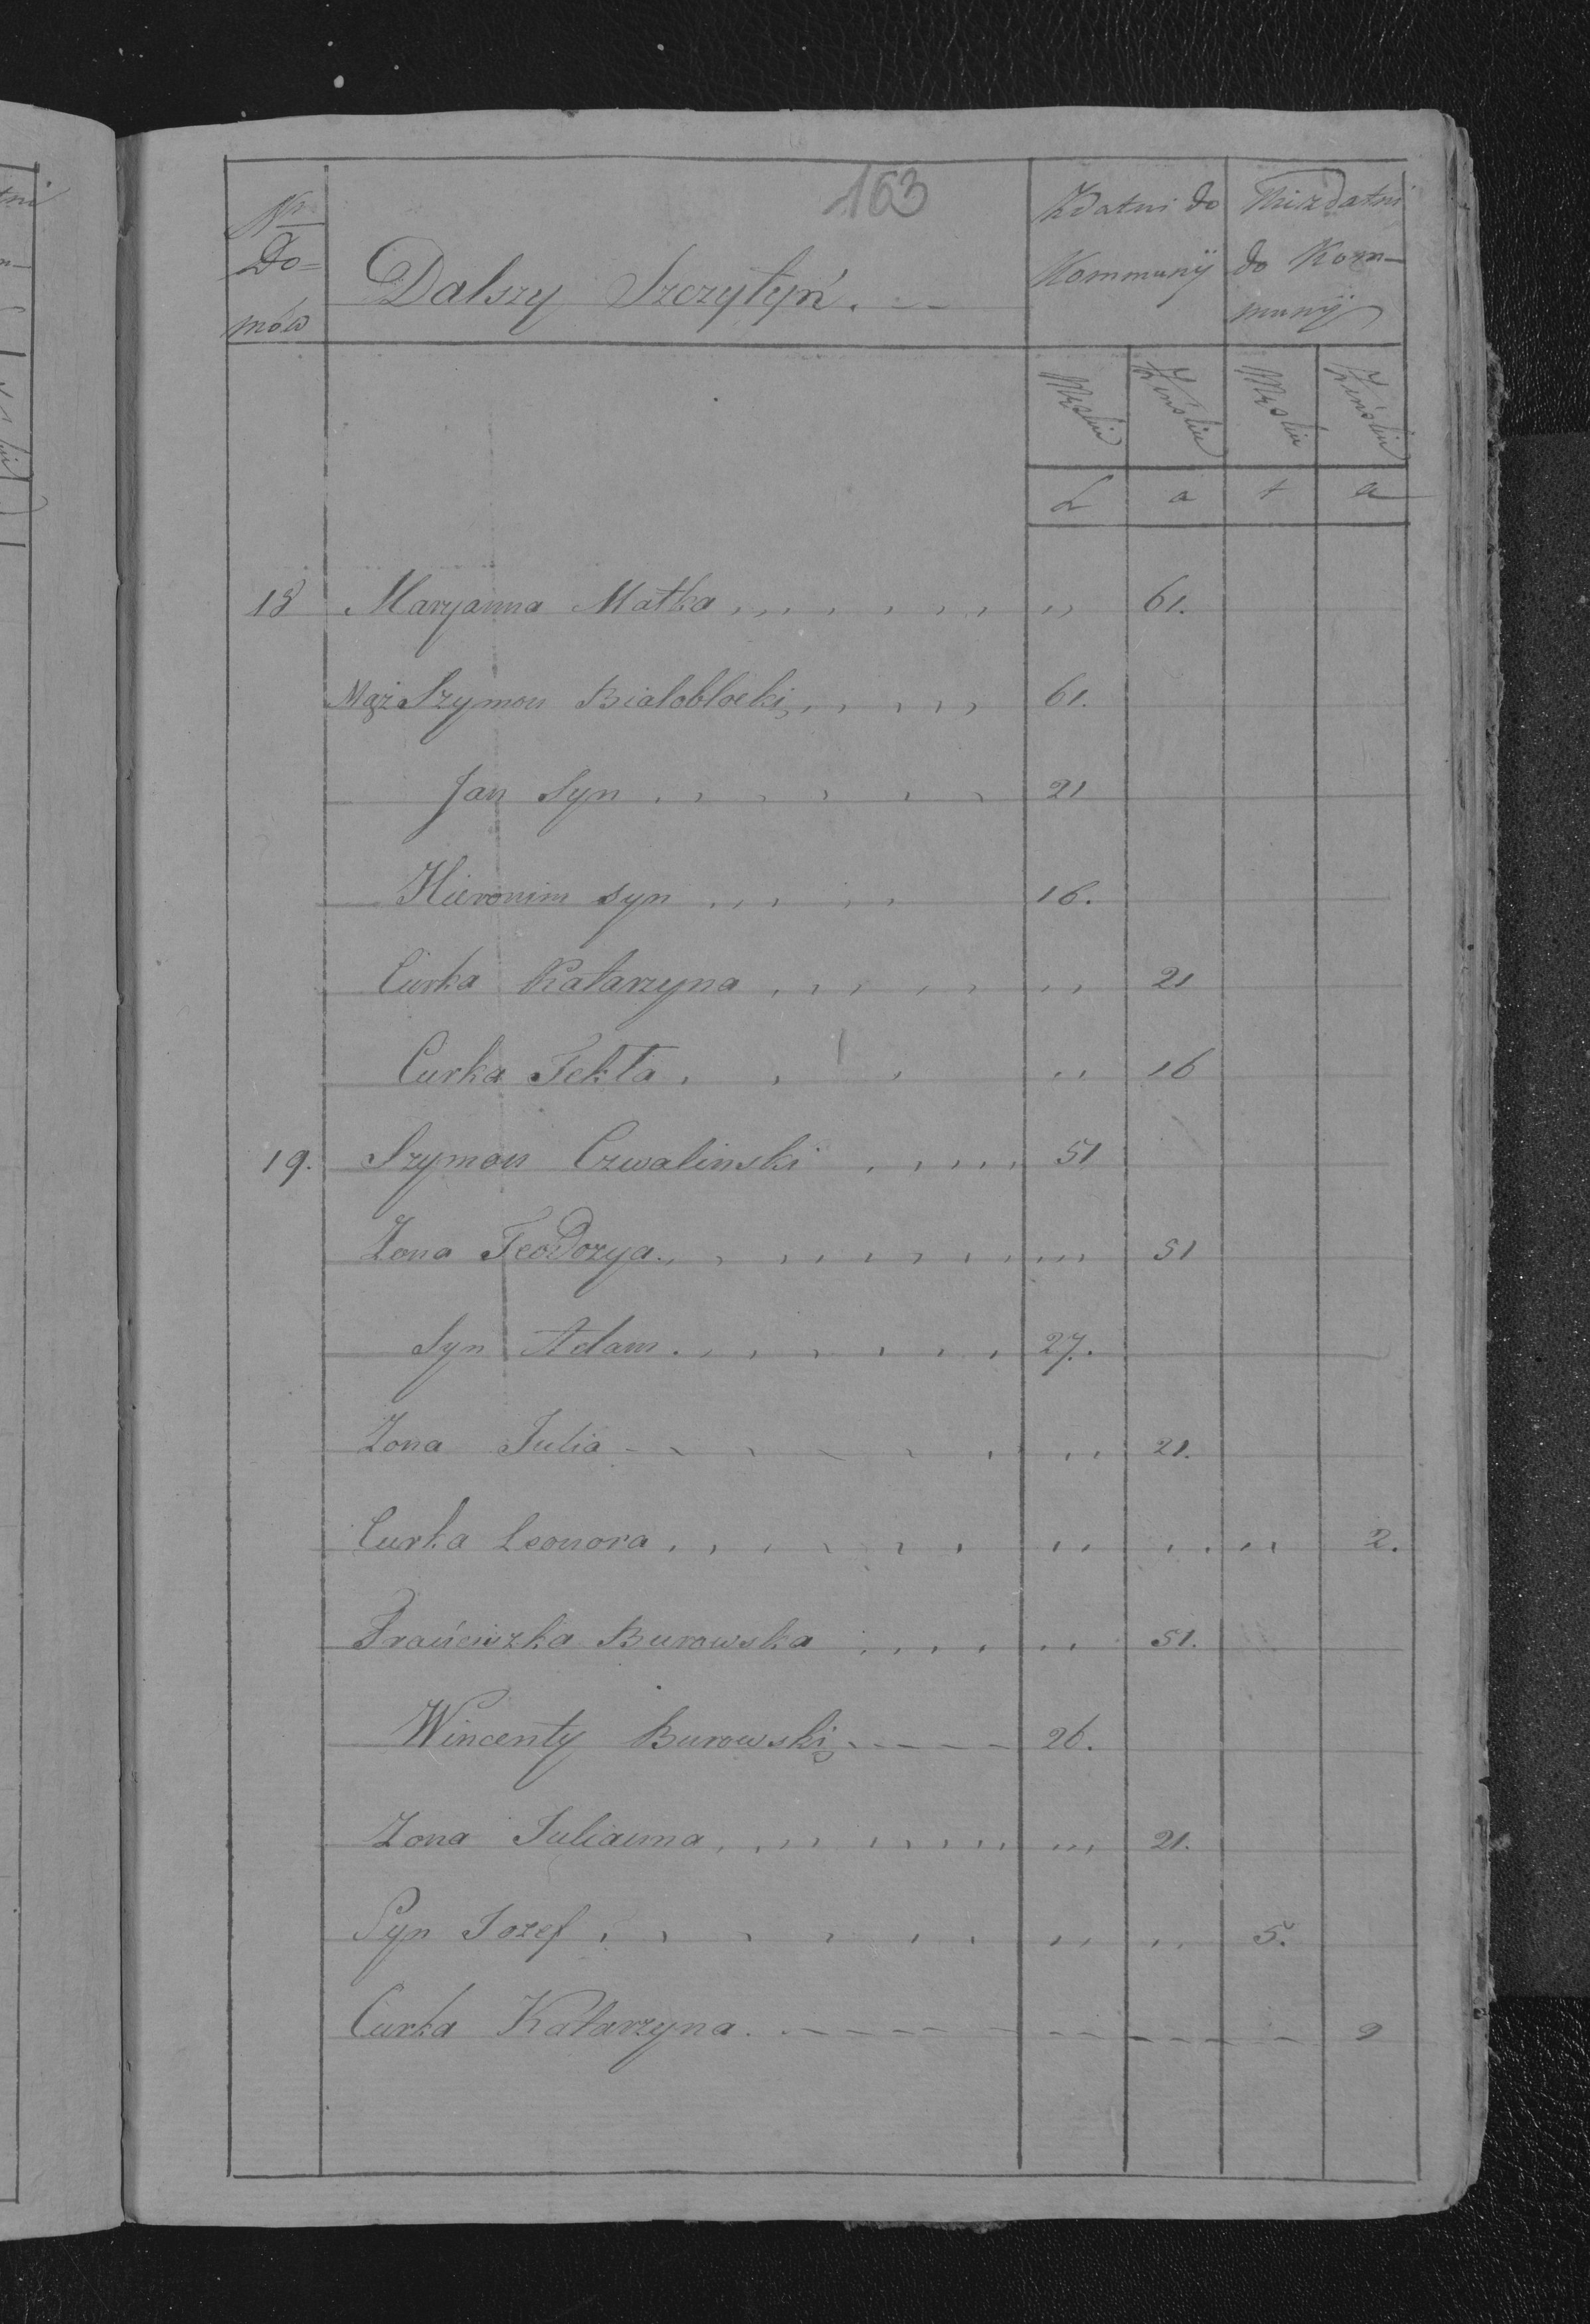 163
Nr Do=mów
Dalszy Szczytyń.
Zdatni do Kommunij
Niezdatni do Kom-munij
Męskie Żeńskie Męskie Żeńskie
L a t a
18 Maryanna Matka ,, 61.
Mąż Szymon Białobłocki 61.
Jan Syn 21
Hieronim syn 16.
Curka Katarzyna ,, 21
Curka Tekla ,, 16
19. Szymon Czwalinski 51
Zona Teodozya ,, 51
Syn Adam 27.
Zona Julia ,, 21.
Curka Leonora ,, ,, ,, 2.
Franciszka Burowska ,, 51.
Wincenty Burowski 26.
Zona Julianna ,, 21.
Syn Jozef ,, ,, 5.
Curka Katarzyna 9